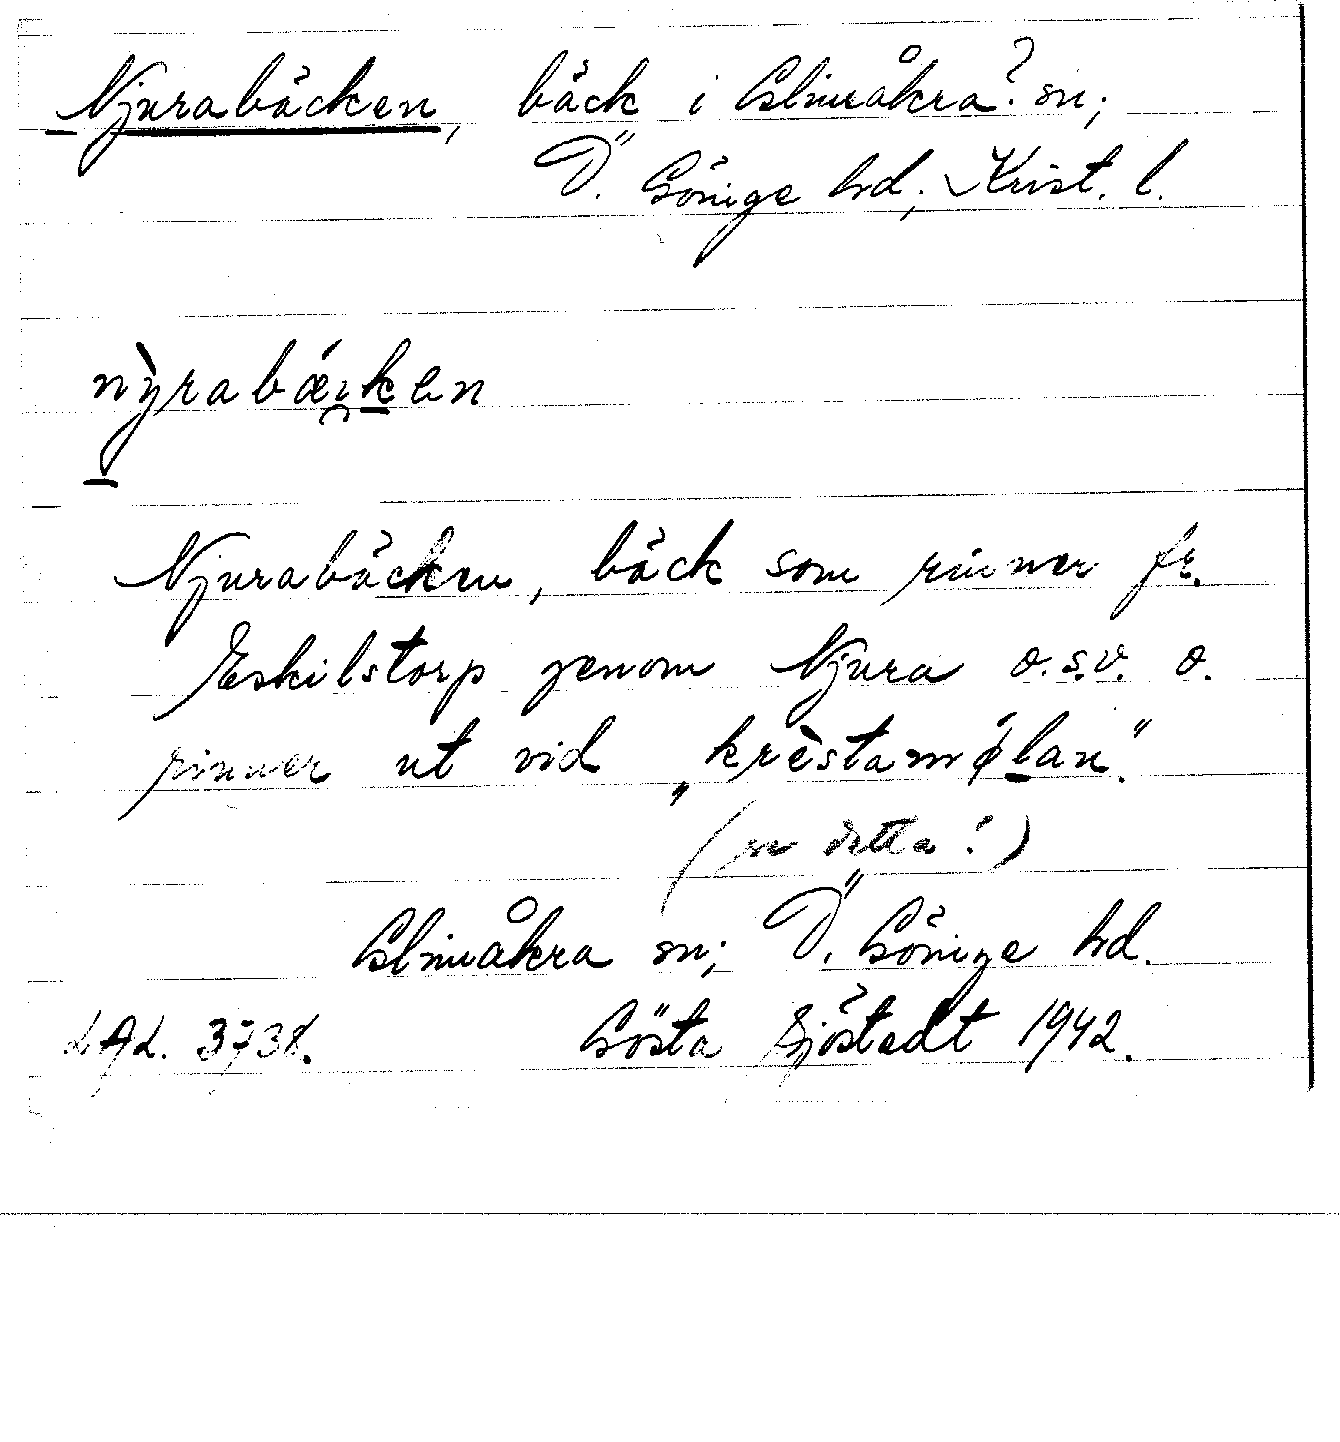 Njurabäcken, bäck i Glimåkra? sn;
Ö. Göinge hd, Krist. l.
nỳrabæ̀kken
Njurabäcken, bäck som rinner fr.
Eskilstorp genom Njura o.s.v. o.
rinner ut vid „krèstamǿlan".
(          detta!)
Glimåkra sn; Ö. Göinge hd.
LAL. 3738. Gösta Sjöstedt 1942.